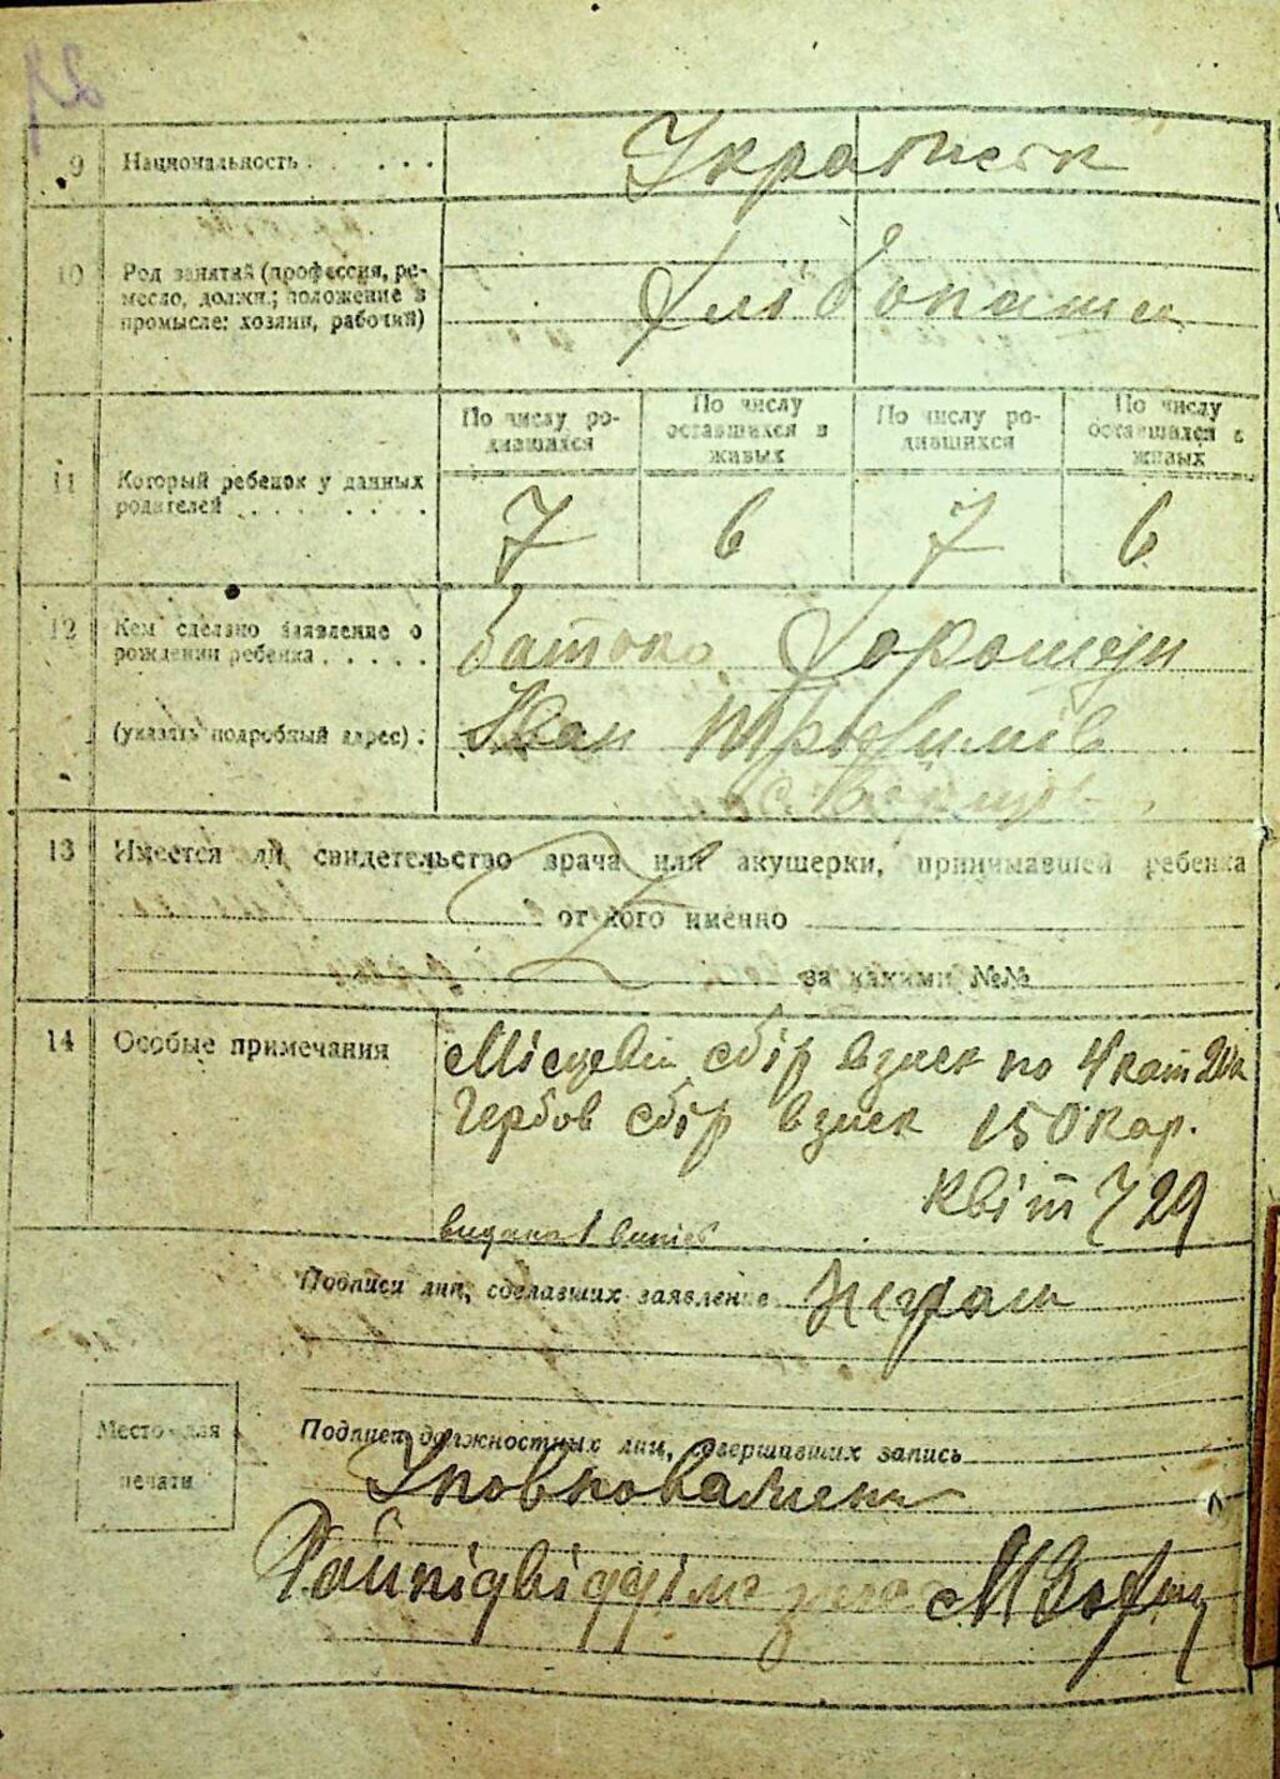 9 Национальность . . . . Україн
10 Род занятий (профессия, ре-
месло, должн.; положение в
промысле: хозяин, рабочий)
Хлібопаш
11 Который ребенок у данных
родителей . . . . . . .
По числу ро-
дившихся
По числу
оставшихся в
живых
По числу ро-
дившихся
По числу
оставшихся в
живых
7 6 7 6
12 Кем сделано заявление о
рождении ребенка . . . . .
(указать подробный адрес) .
батько Дорошен
Іван Трохимів
с.
13 Имеется ли свидетельство врача или акушерки, принимавшей ребенка
от кого именно
за какими №№
14 Особые примечания
Місцевий сбір взиск по 4 кат 20 к
Гербов сбір взиск 150 кар.
Квіт 729
видано 1 випис
Подписи лиц, сделавших заявление
Место для
печати
Подписи должностных лиц, совершивших запись
Райпідвідділ